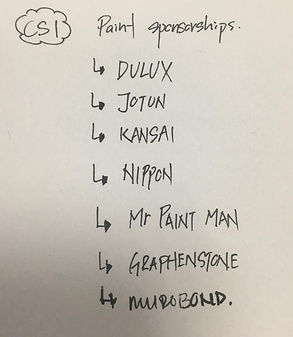 CSI Paint sponsorships.
↳ DULUX
↳ JOTUN
↳ KANSAI
↳ NIPPON
↳ Mr PAINT MAN
↳ GRAPHENSTONE
↳ MUROBOND.